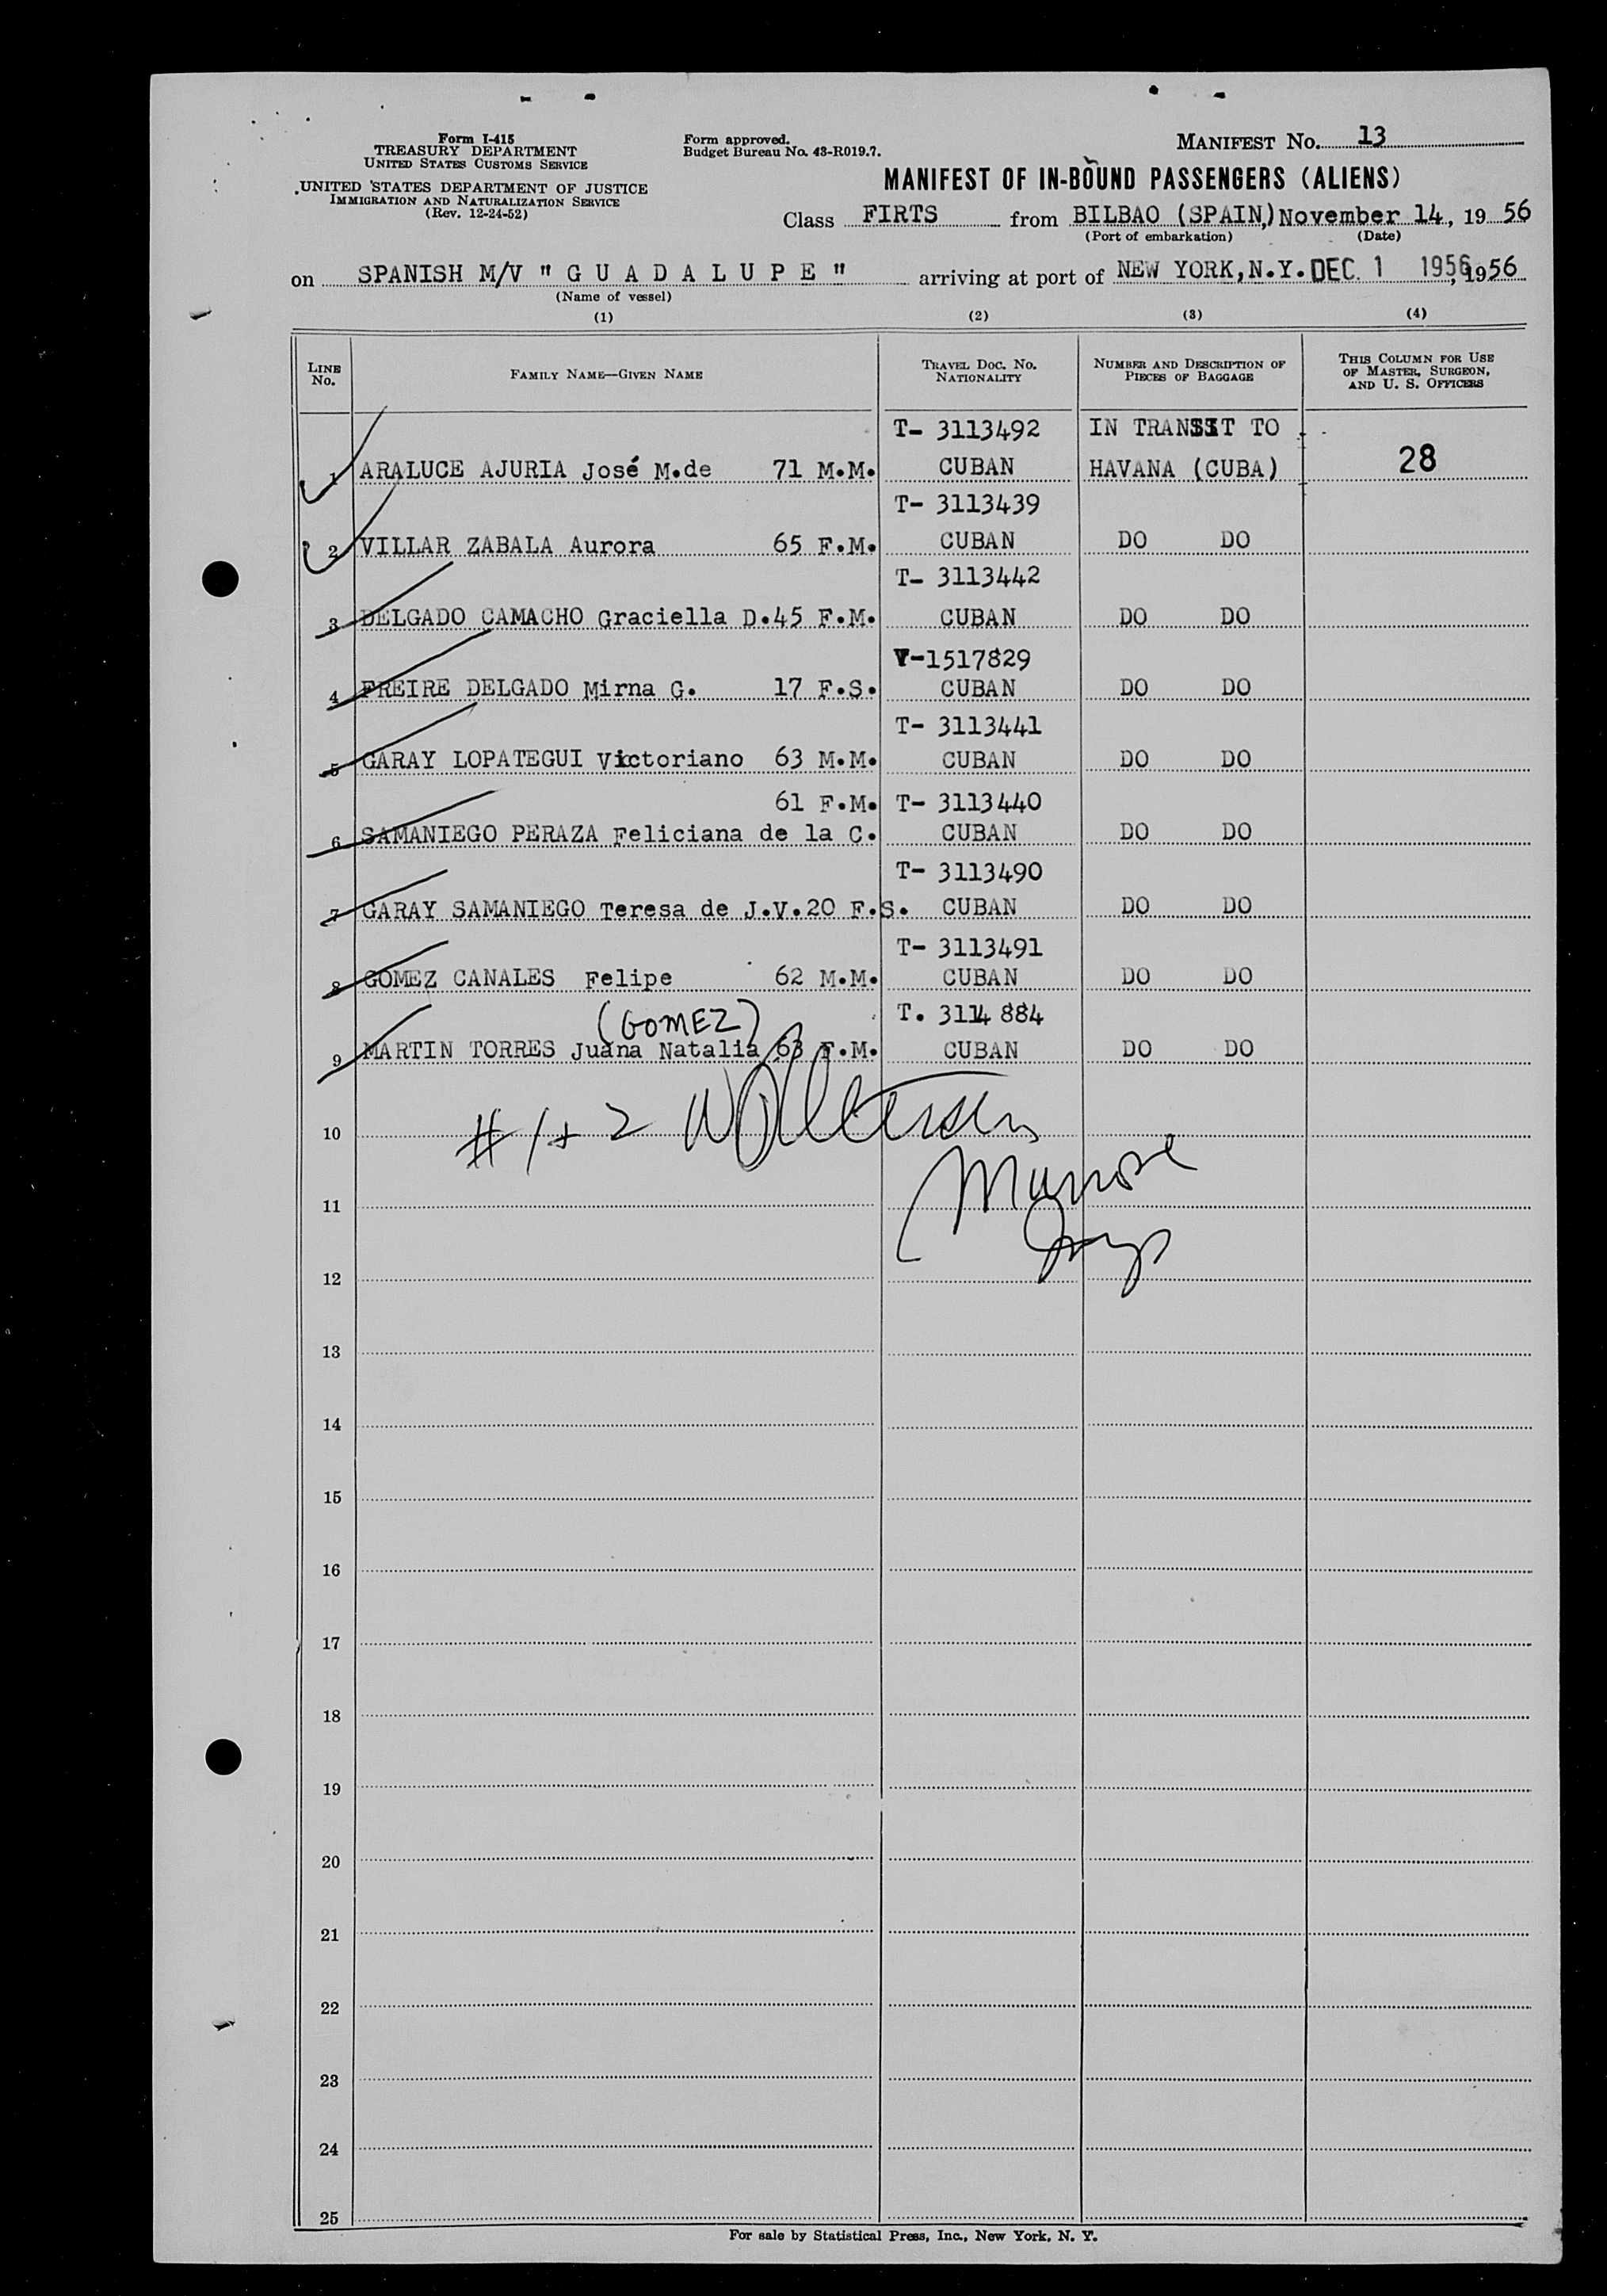 Form I-415
TREASURY DEPARTMENT
UNITED STATES CUSTOMS SERVICE
UNITED STATES DEPARTMENT OF JUSTICE
IMMIGRATION AND NATURALIZATION SERVICE
(Rev. 12-24-52)
Form approved.
Budget Bureau No. 43-R019.7.
MANIFEST No. 13
MANIFEST OF IN-BOUND PASSENGERS (ALIENS)
Class FIRTS from BILBAO (SPAIN,) November 14, 19 56
(Port of embarkation) (Date)
on SPANISH M/V " G U A D A L U P E " arriving at port of NEW YORK, N.Y. DEC. 1 1956, 1956
(Name of vessel)
(1) (2) (3) (4)
LINE No. FAMILY NAME—GIVEN NAME TRAVEL DOC. No. NATIONALITY NUMBER AND DESCRIPTION OF PIECES OF BAGGAGE THIS COLUMN FOR USE OF MASTER, SURGEON, AND U. S. OFFICERS
T- 3113492 IN TRANSIT TO
1 ARALUCE AJURIA José M.de 71 M.M. CUBAN HAVANA (CUBA) 28
T- 3113439
2 VILLAR ZABALA Aurora 65 F.M. CUBAN DO DO
T- 3113442
3 DELGADO CAMACHO Graciella D.45 F.M. CUBAN DO DO
T-1517829
4 FREIRE DELGADO Mirna G. 17 F.S. CUBAN DO DO
T- 3113441
5 GARAY LOPATEGUI Victoriano 63 M.M. CUBAN DO DO
61 F.M. T- 3113440
6 SAMANIEGO PERAZA Feliciana de la C. CUBAN DO DO
T- 3113490
7 GARAY SAMANIEGO Teresa de J.V.20 F.S. CUBAN DO DO
T- 3113491
8 GOMEZ CANALES Felipe 62 M.M. CUBAN DO DO
(GOMEZ) T. 3114 884
9 MARTIN TORRES Juana Natalia 63 F.M. CUBAN DO DO
# 1 + 2
10
11
12
13
14
15
16
17
18
19
20
21
22
23
24
25
For sale by Statistical Press, Inc., New York, N. Y.